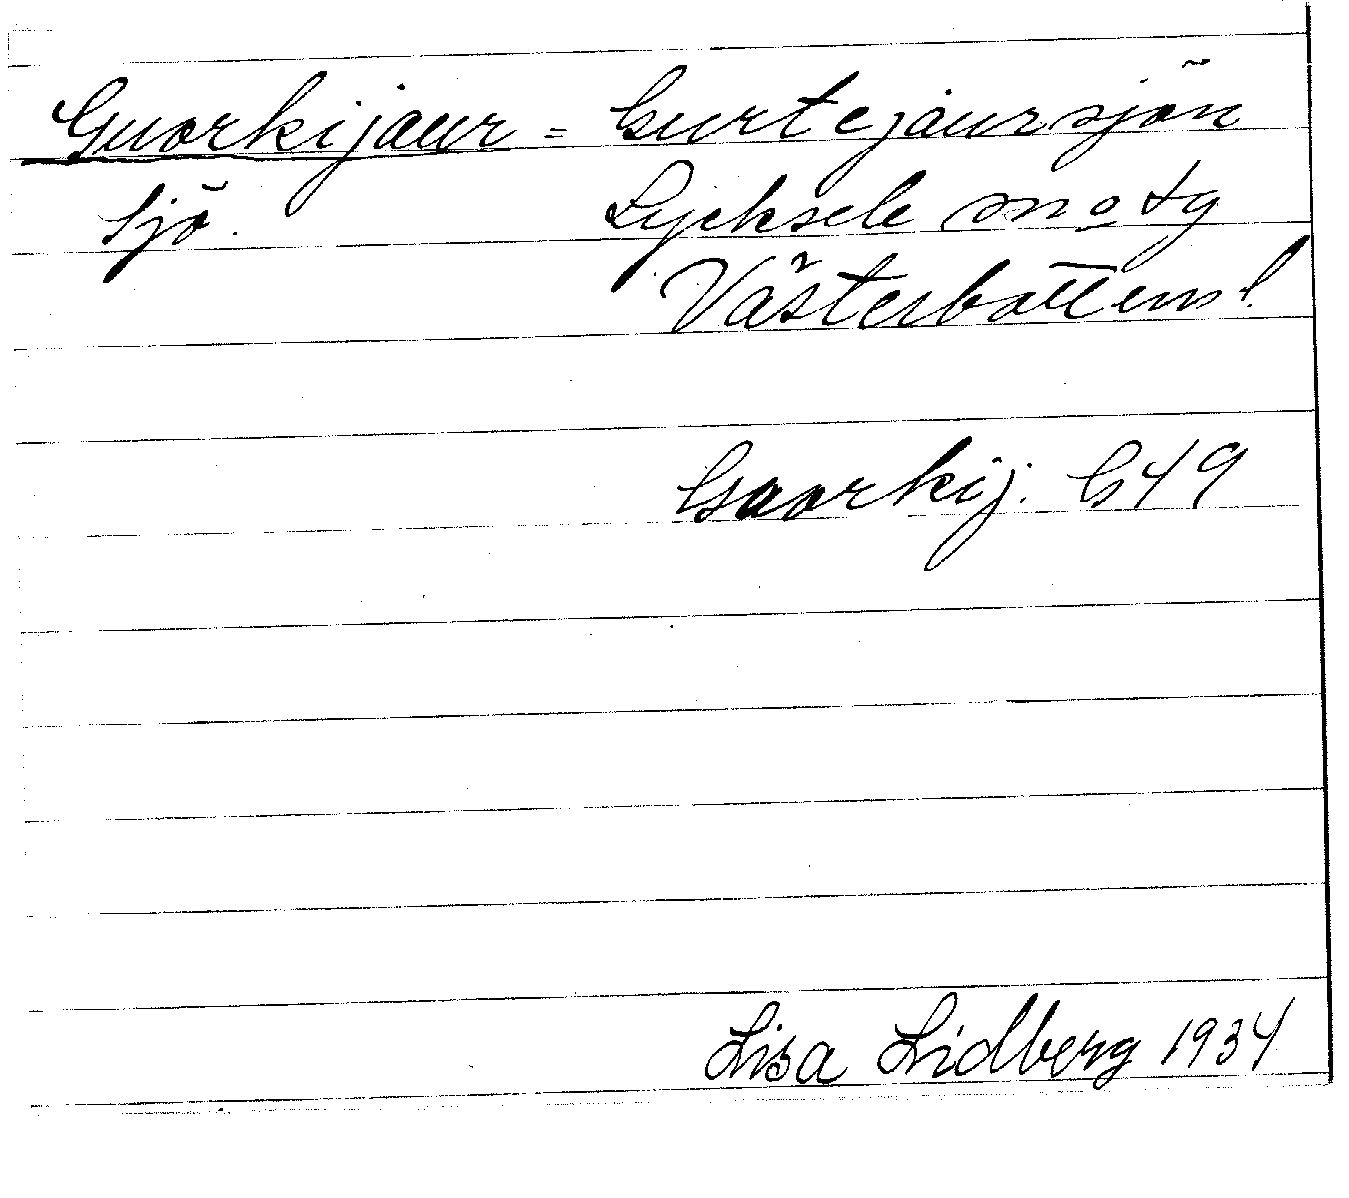 Guorkijaur = Gurtejaursjön
Sjö. Lycksele m o tg
Västerbottens l.
Guorkij. G49
Lisa Lidberg 1934